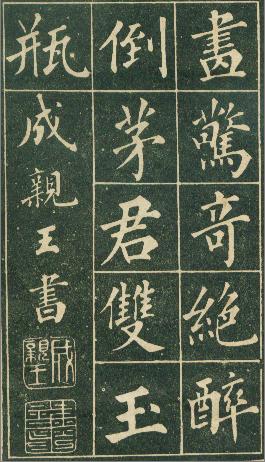 畫驚奇絕醉
倒茅君雙玉
瓶
成親王書
成親王